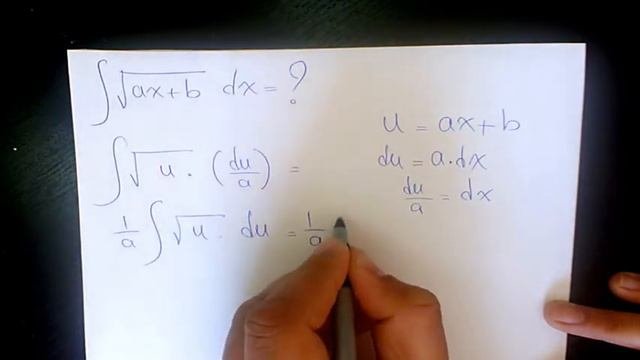 ∫√(ax+b) dx = ?
∫√u · (du/a) =
1/a ∫√u · du = 1/a
u = ax+b
du = a·dx
du/a = dx